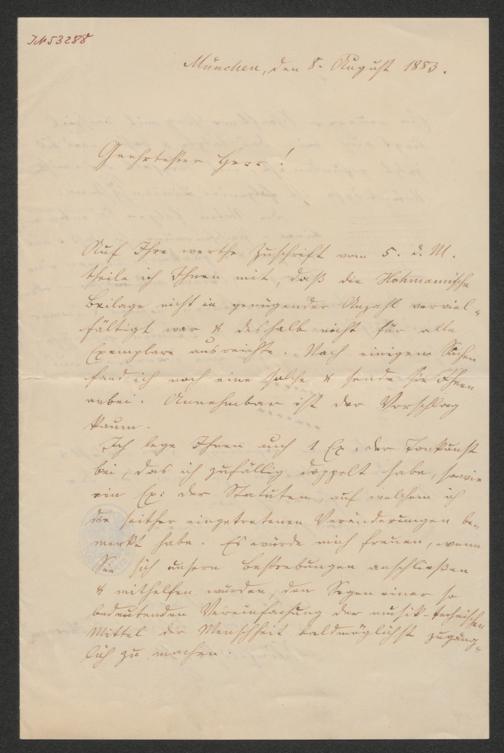 JN 53288
München, den 8. August 1883.
Geehrtester Herr!
Auf Ihre werthe Zuschrift vom 5. d. M.
theile ich Ihnen mit, daß die Hohmannische
Beilage nicht in genügender Anzahl verviel-
fältigt war & deshalb nicht für alle
Exemplare ausreichte. Nach einigem Suchen
fand ich noch eine solche & sende sie Ihnen
anbei. Annehmbar ist der Vorschlag
kaum.
Ich lege Ihnen auch 1 Ex. der Tonkunst
bei, das ich zufällig doppelt habe, sowie
ein Ex: der Statuten, auf welchem ich
die seither eingetretenen Veränderungen be-
merkt habe. Es würde mich freuen, wenn
Sie sich unsern Bestrebungen anschließen
& mithelfen würden, den Segen einer so
bedeutenden Vereinfachung der musik-technischen
Mittel der Menschheit baldmöglichst zugäng-
lich zu machen.